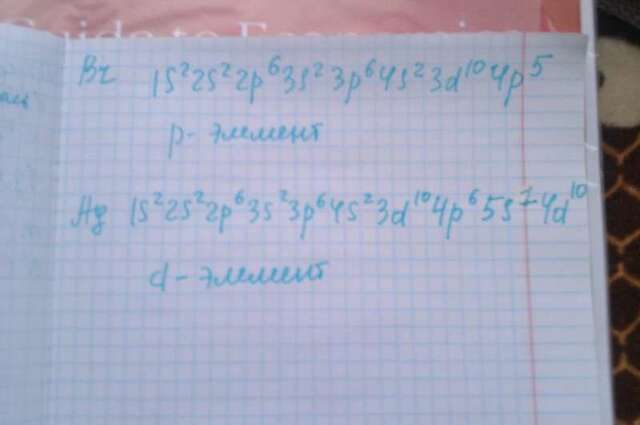 Guide to Economi
Br 1s²2s²2p⁶3s²3p⁶4s²3d¹⁰4p⁵
p- элемент
Ag 1s²2s²2p⁶3s²3p⁶4s²3d¹⁰4p⁶5s¹4d¹⁰
d- элемент